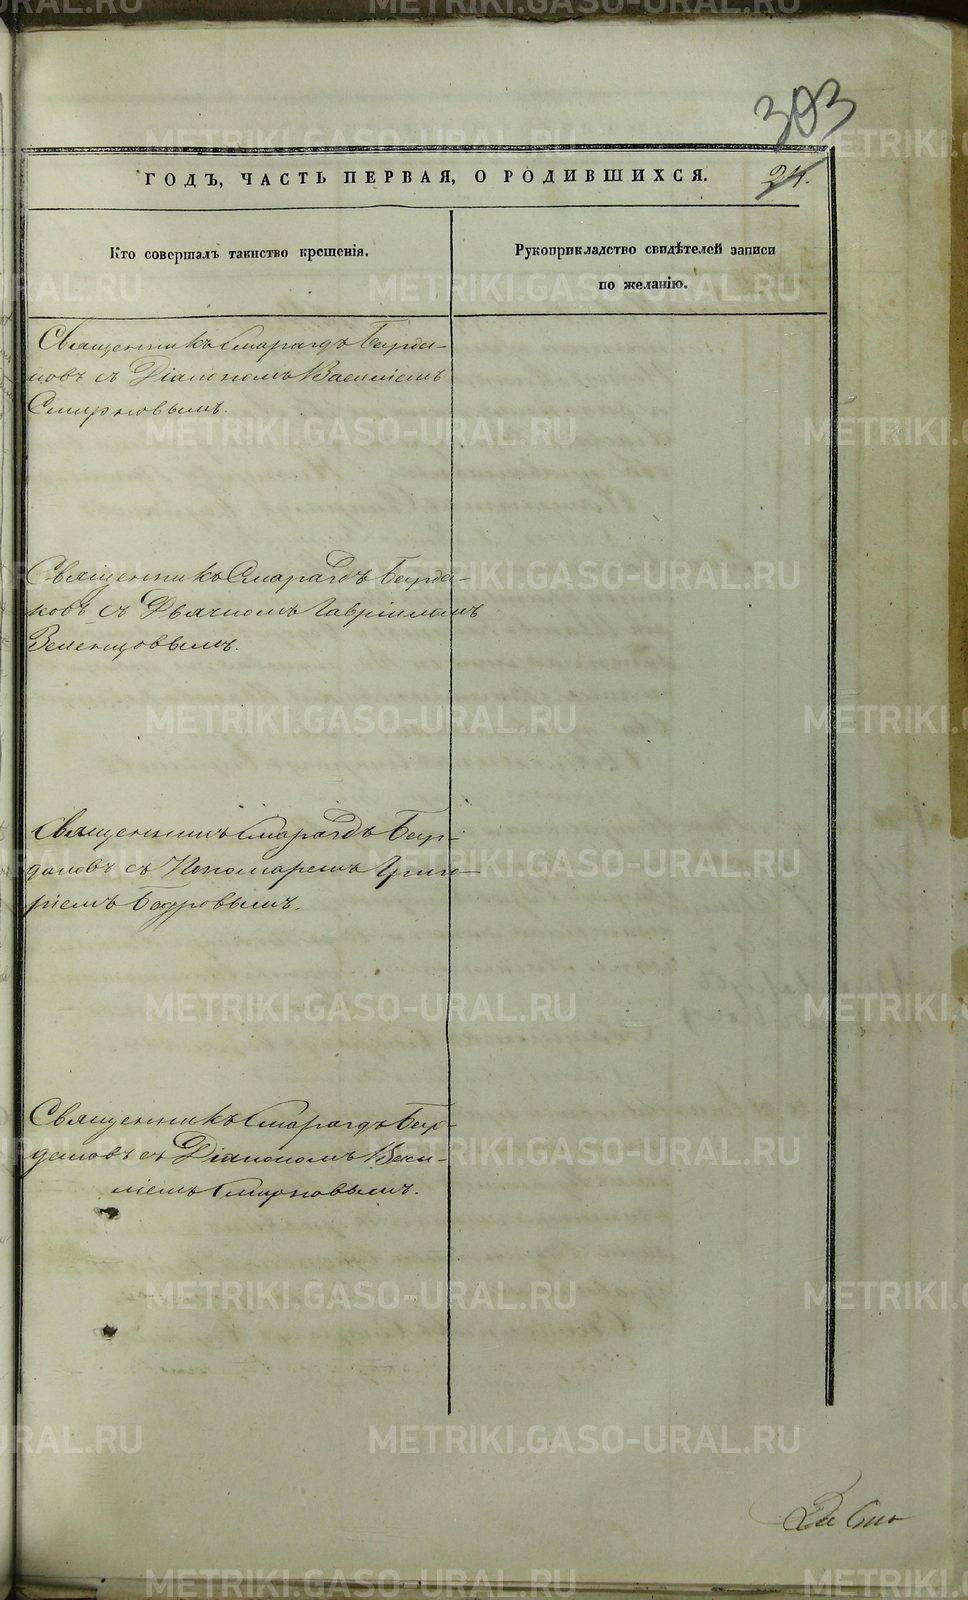 303
ГОДЪ, ЧАСТЬ ПЕРВАЯ, О РОДИВШИХСЯ. 24.
Кто совершалъ таинство крещенія.
Рукоприкладство свидѣтелей записи
по желанію.
Священникъ Смарагдъ Берда-
ковъ съ Діакономъ Василіемъ
Смирновымъ.
Священникъ Смарагдъ Берда-
ковъ съ Дьячкомъ Гавріиломъ
Земенцовымъ.
Священникъ Смарагдъ Бер-
даковъ съ Пономаремъ Григо-
ріемъ Бодровымъ.
Священникъ Смарагдъ Бер-
даковъ съ Діакономъ Васи-
ліемъ Смирновымъ.
METRIKI.GASO-URAL.RU